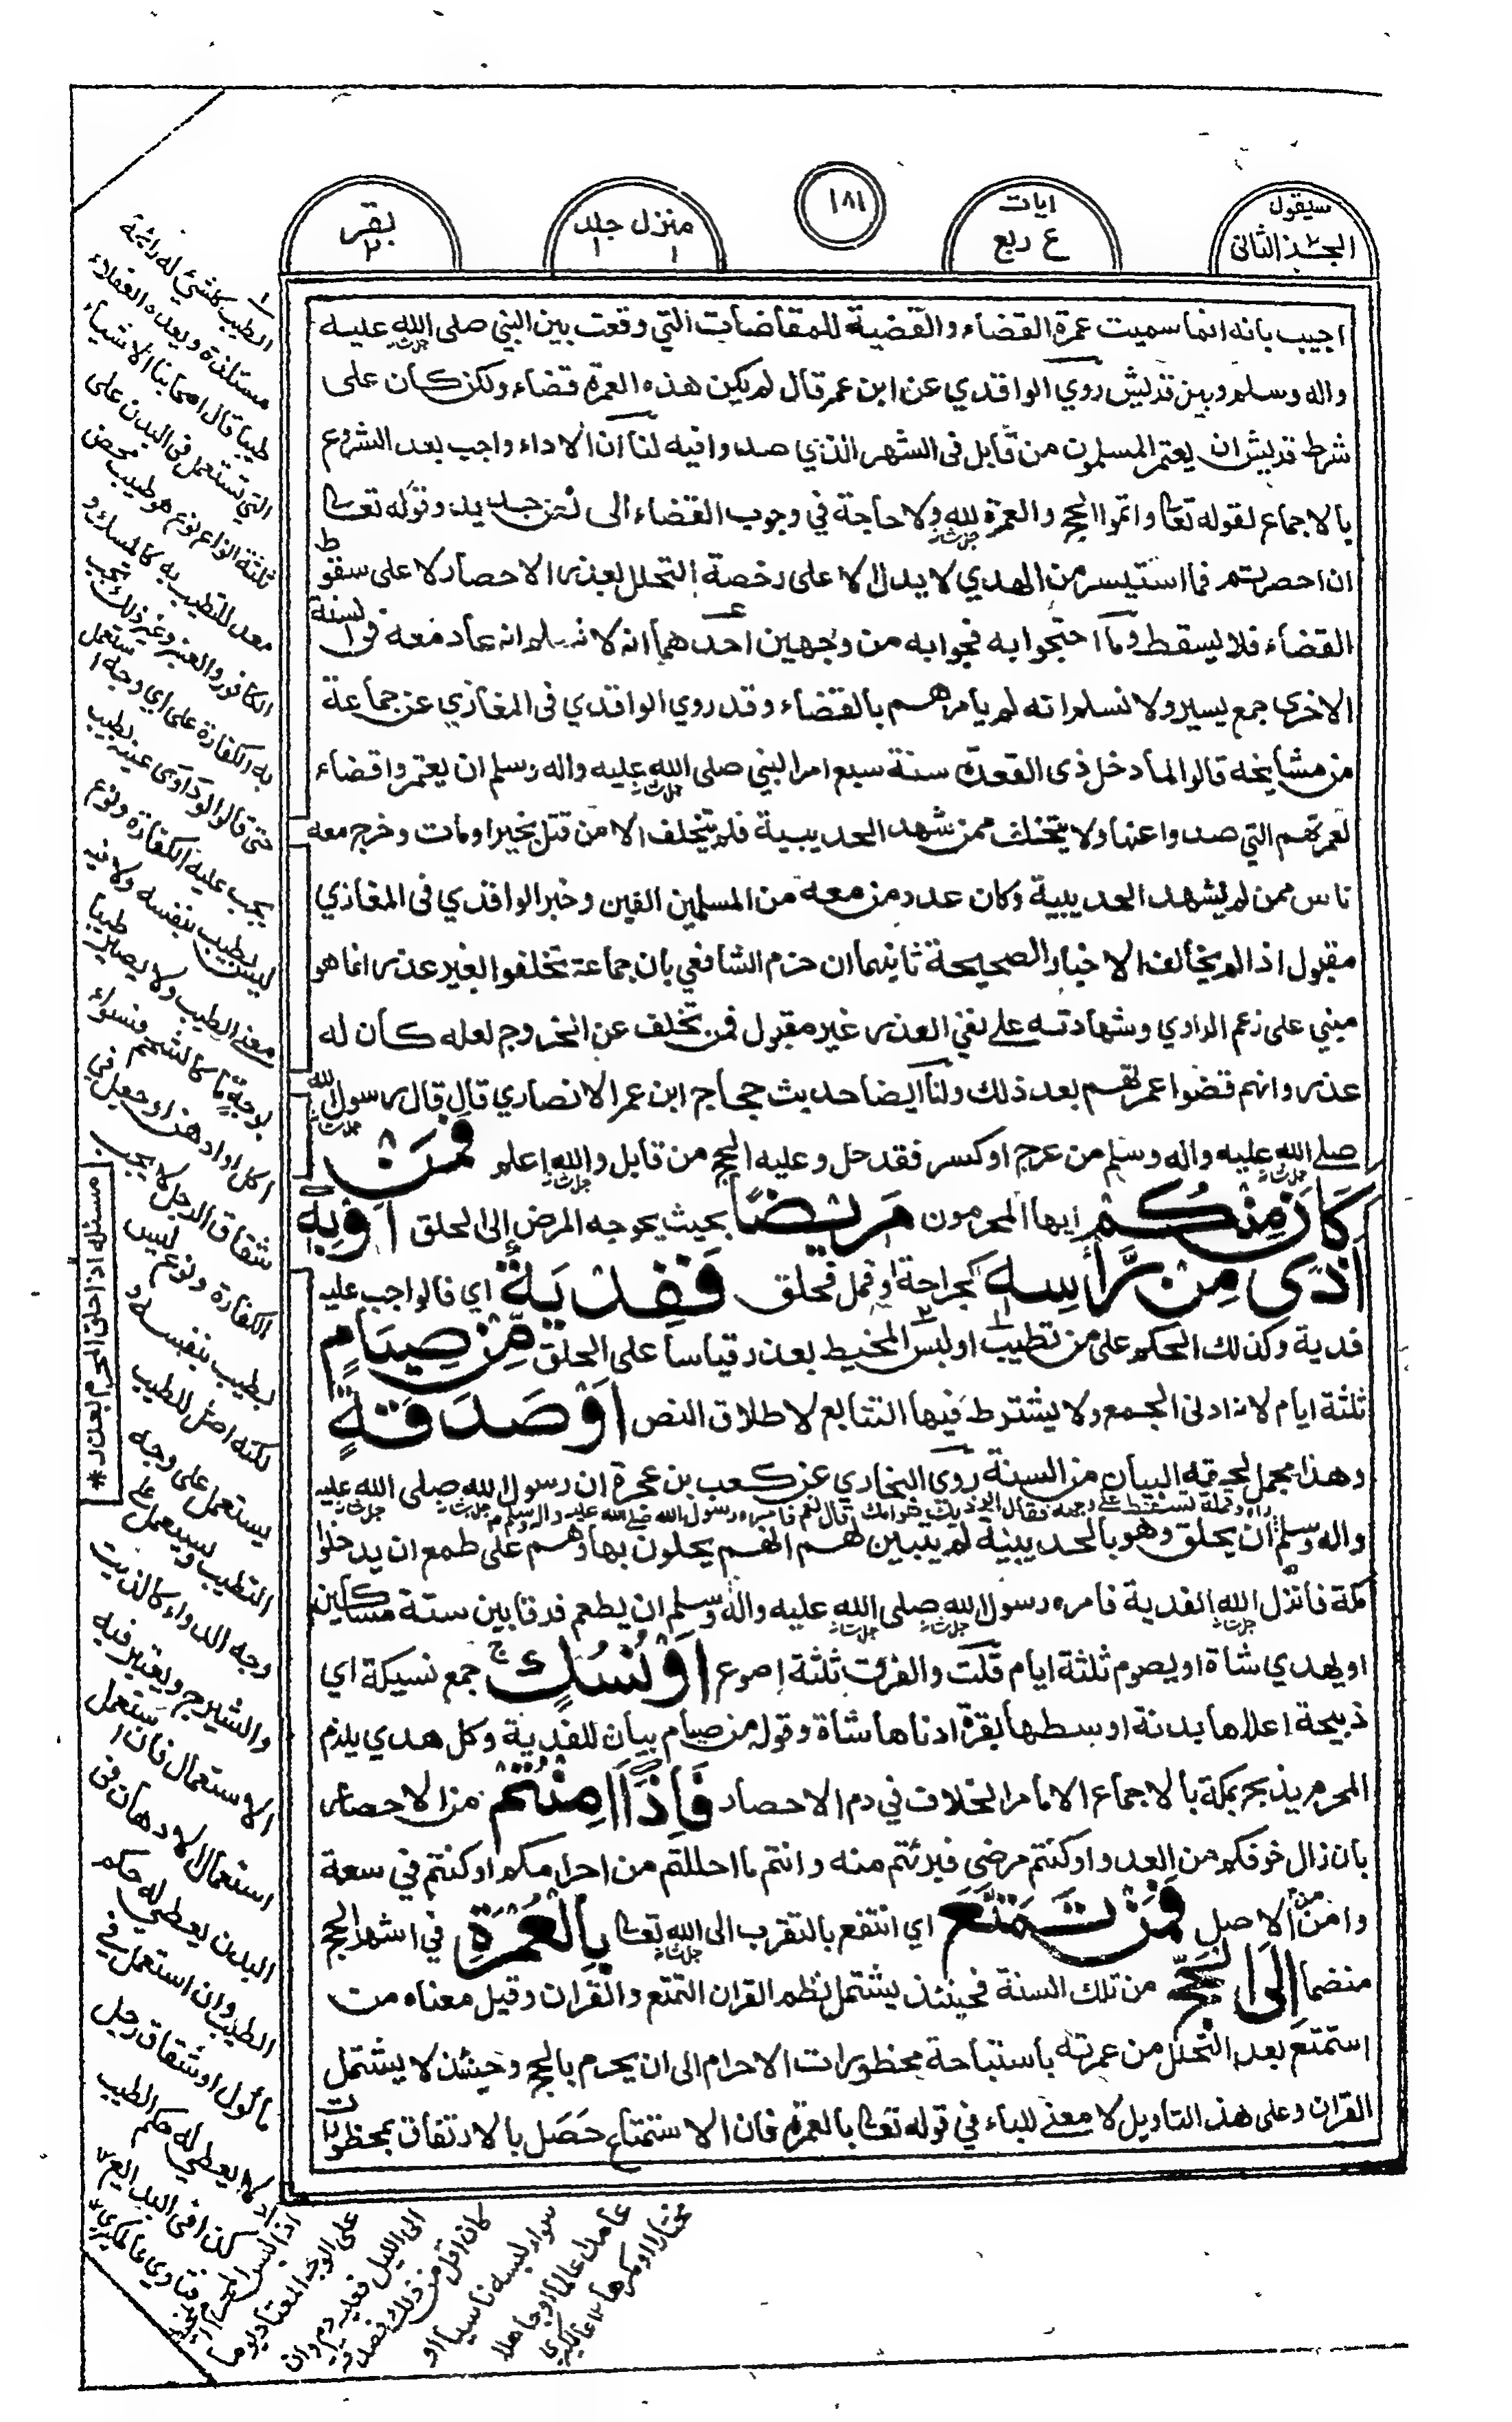 سيقول
الجزء الثانی
ايات
ع ربع
١٨١
منزل جلد
١ ١
بقر
٢
اجيب بانه انما سميت عمرة القضاء والقضية للمقاضات التي وقعت بين النبي صلى الله عليه
واله وسلم وبين قريش روي الواقدي عن ابن عمر قال لم يكن هذه العمرة قضاء ولكن كان على
شرط قريش ان يعتمر المسلمون من قابل فى الشهر الذي صدوا فيه لنا ان الاداء واجب بعد الشروع
بالاجماع لقوله تعا واتموا الحج والعمرة لله ولا حاجة في وجوب القضاء الى نص جديد وقوله تعا
ان احصرتم فما استيسر من الهدي لا يدل الا على رخصة التحلل بعذر الاحصار لا على سقوط
القضاء فلا يسقط وما احتجوا به فجوابه من وجهين احدهما انه لا نسلم انه عاد معه فى السنة
الاخرى جمع يسير ولا نسلم انه لم يامرهم بالقضاء وقد روي الواقدي فى المغازي عن جماعة
من مشايخه قالوا لما دخل ذى القعدة سنة سبع امر النبي صلى الله عليه واله وسلم ان يعتمروا قضاء
لعمرتهم التي صدوا عنها ولا يتخلف ممن شهد الحديبية فلم يتخلف الا من قتل بخيبر او مات وخرج معه
ناس ممن لم يشهد الحديبية وكان عدد من معه من المسلمين الفين وخبر الواقدي فى المغازي
مقبول اذا لم يخالف الاخبار الصحيحة ثانيهما ان حزم الشافعي بان جماعة تخلفوا لغير عذر انما هو
مبني على زعم الراوي وشهادته على نفي العذر غير مقبول فمن تخلف عن الخروج لعله كان له
عذر وانهم قضوا عمرتهم بعد ذلك ولنا ايضا حديث حجاج ابن عمر الانصاري قال قال رسول الله
صلى الله عليه واله وسلم من عرج او كسر فقد حل وعليه الحج من قابل والله اعلم فَمَنْ
كَانَ مِنْكُمْ ايها المحرمون مَرِيْضًا بحيث يحوجه المرض الى الحلق اَوْ بِهٖ
اَذًى مِنْ رَّأْسِهٖ كجراحة او قمل فحلق فَفِدْيَةٌ اي فالواجب عليه
فدية وكذلك الحكم على من تطيب او لبس المخيط بعذر قياسا على الحلق مِّنْ صِيَامٍ
ثلثة ايام لانه ادنى الجمع ولا يشترط فيها التتابع لاطلاق النص اَوْ صَدَقَةٍ
وهذا مجمل لحقه البيان من السنة روى البخاري عن كعب بن عجرة ان رسول الله صلى الله عليه
راه وقملة تسقط على وجهه فقال ايؤذيك هوامك قال نعم فامره رسول الله صلى الله عليه واله وسلم
واله وسلم ان يحلق وهو بالحديبية لم يتبين لهم انهم يحلون بها وهم على طمع ان يدخلوا
مكة فانزل الله الفدية فامره رسول الله صلى الله عليه واله وسلم ان يطعم فرقا بين ستة مساكين
او يهدي شاة او يصوم ثلثة ايام قلت والفرق ثلثة اصوع اَوْ نُسُكٍ جمع نسيكة اي
ذبيحة اعلاها بدنة اوسطها بقرة ادناها شاة وقوله من صيام بيان للفدية وكل هدي يلزم
المحرم يذبح بمكة بالاجماع الا ما مر الخلاف في دم الاحصار فَاِذَا اَمِنْتُمْ من الاحصار
بان زال خوفكم من العدو او كنتم مرضى فبرئتم منه وانتم ما احللتم من احرامكم او كنتم في سعة
وامن من الاصل فَمَنْ تَمَتَّعَ اي انتفع بالتقرب الى الله تعا بِالْعُمْرَةِ في اشهر الحج
منضما اِلَى الْحَجِّ من تلك السنة فحينئذ يشتمل نظم القران التمتع والقران وقيل معناه من
استمتع بعد التحلل من عمرته باستباحة محظورات الاحرام الى ان يحرم بالحج وحينئذ لا يشتمل
القران وعلى هذا التاويل لا معنى للباء في قوله تعا بالعمرة فان الاستمتاع حصل بالارتفاق بمحظورات
١
الطيب كلشئ له رائحة
مستلذة ويعده العقلاء
طيبا قال اصحابنا الاشياء
التي تستعمل فى البدن على
ثلثة انواع نوع هو طيب محض
معد للتطيب به كالمسك و
الكافور والعنبر وغير ذلك يجب
به الكفارة على اي وجه استعمل
حتى قالوا لو داوى عينه بطيب
يجب عليه الكفارة ونوع
ليس بطيب بنفسه ولا فيه
معنى الطيب ولا يصير طيبا
بوجه ما كالشحم فسواء
اكل او ادهن او جعل في
شقاق الرجل لا يجب
الكفارة ونوع ليس
بطيب بنفسه و
لكنه اصل للطيب
يستعمل على وجه
التطيب ويستعمل على
وجه الدواء كالزيت
والشيرج ويعتبر فيه
الاستعمال فان استعمل
استعمال الادهان فى
البدن يعطى له حكم
الطيب وان استعمل في
مأكول او شقاق رجل
لا يعطى له حكم الطيب
كذا فى البدائع
فتاوى عالمكيري
مسئلة اذا حلق المحرم لعذر *
اذا لبس المحرم
على الوجه المعتاد يوما
الى الليل فعليه دم وان
كان اقل من ذلك فصدقة
سواء لبسه ناسيا او
عامدا عالما او جاهلا
مختارا او مكرها ١٢ عالمكيري